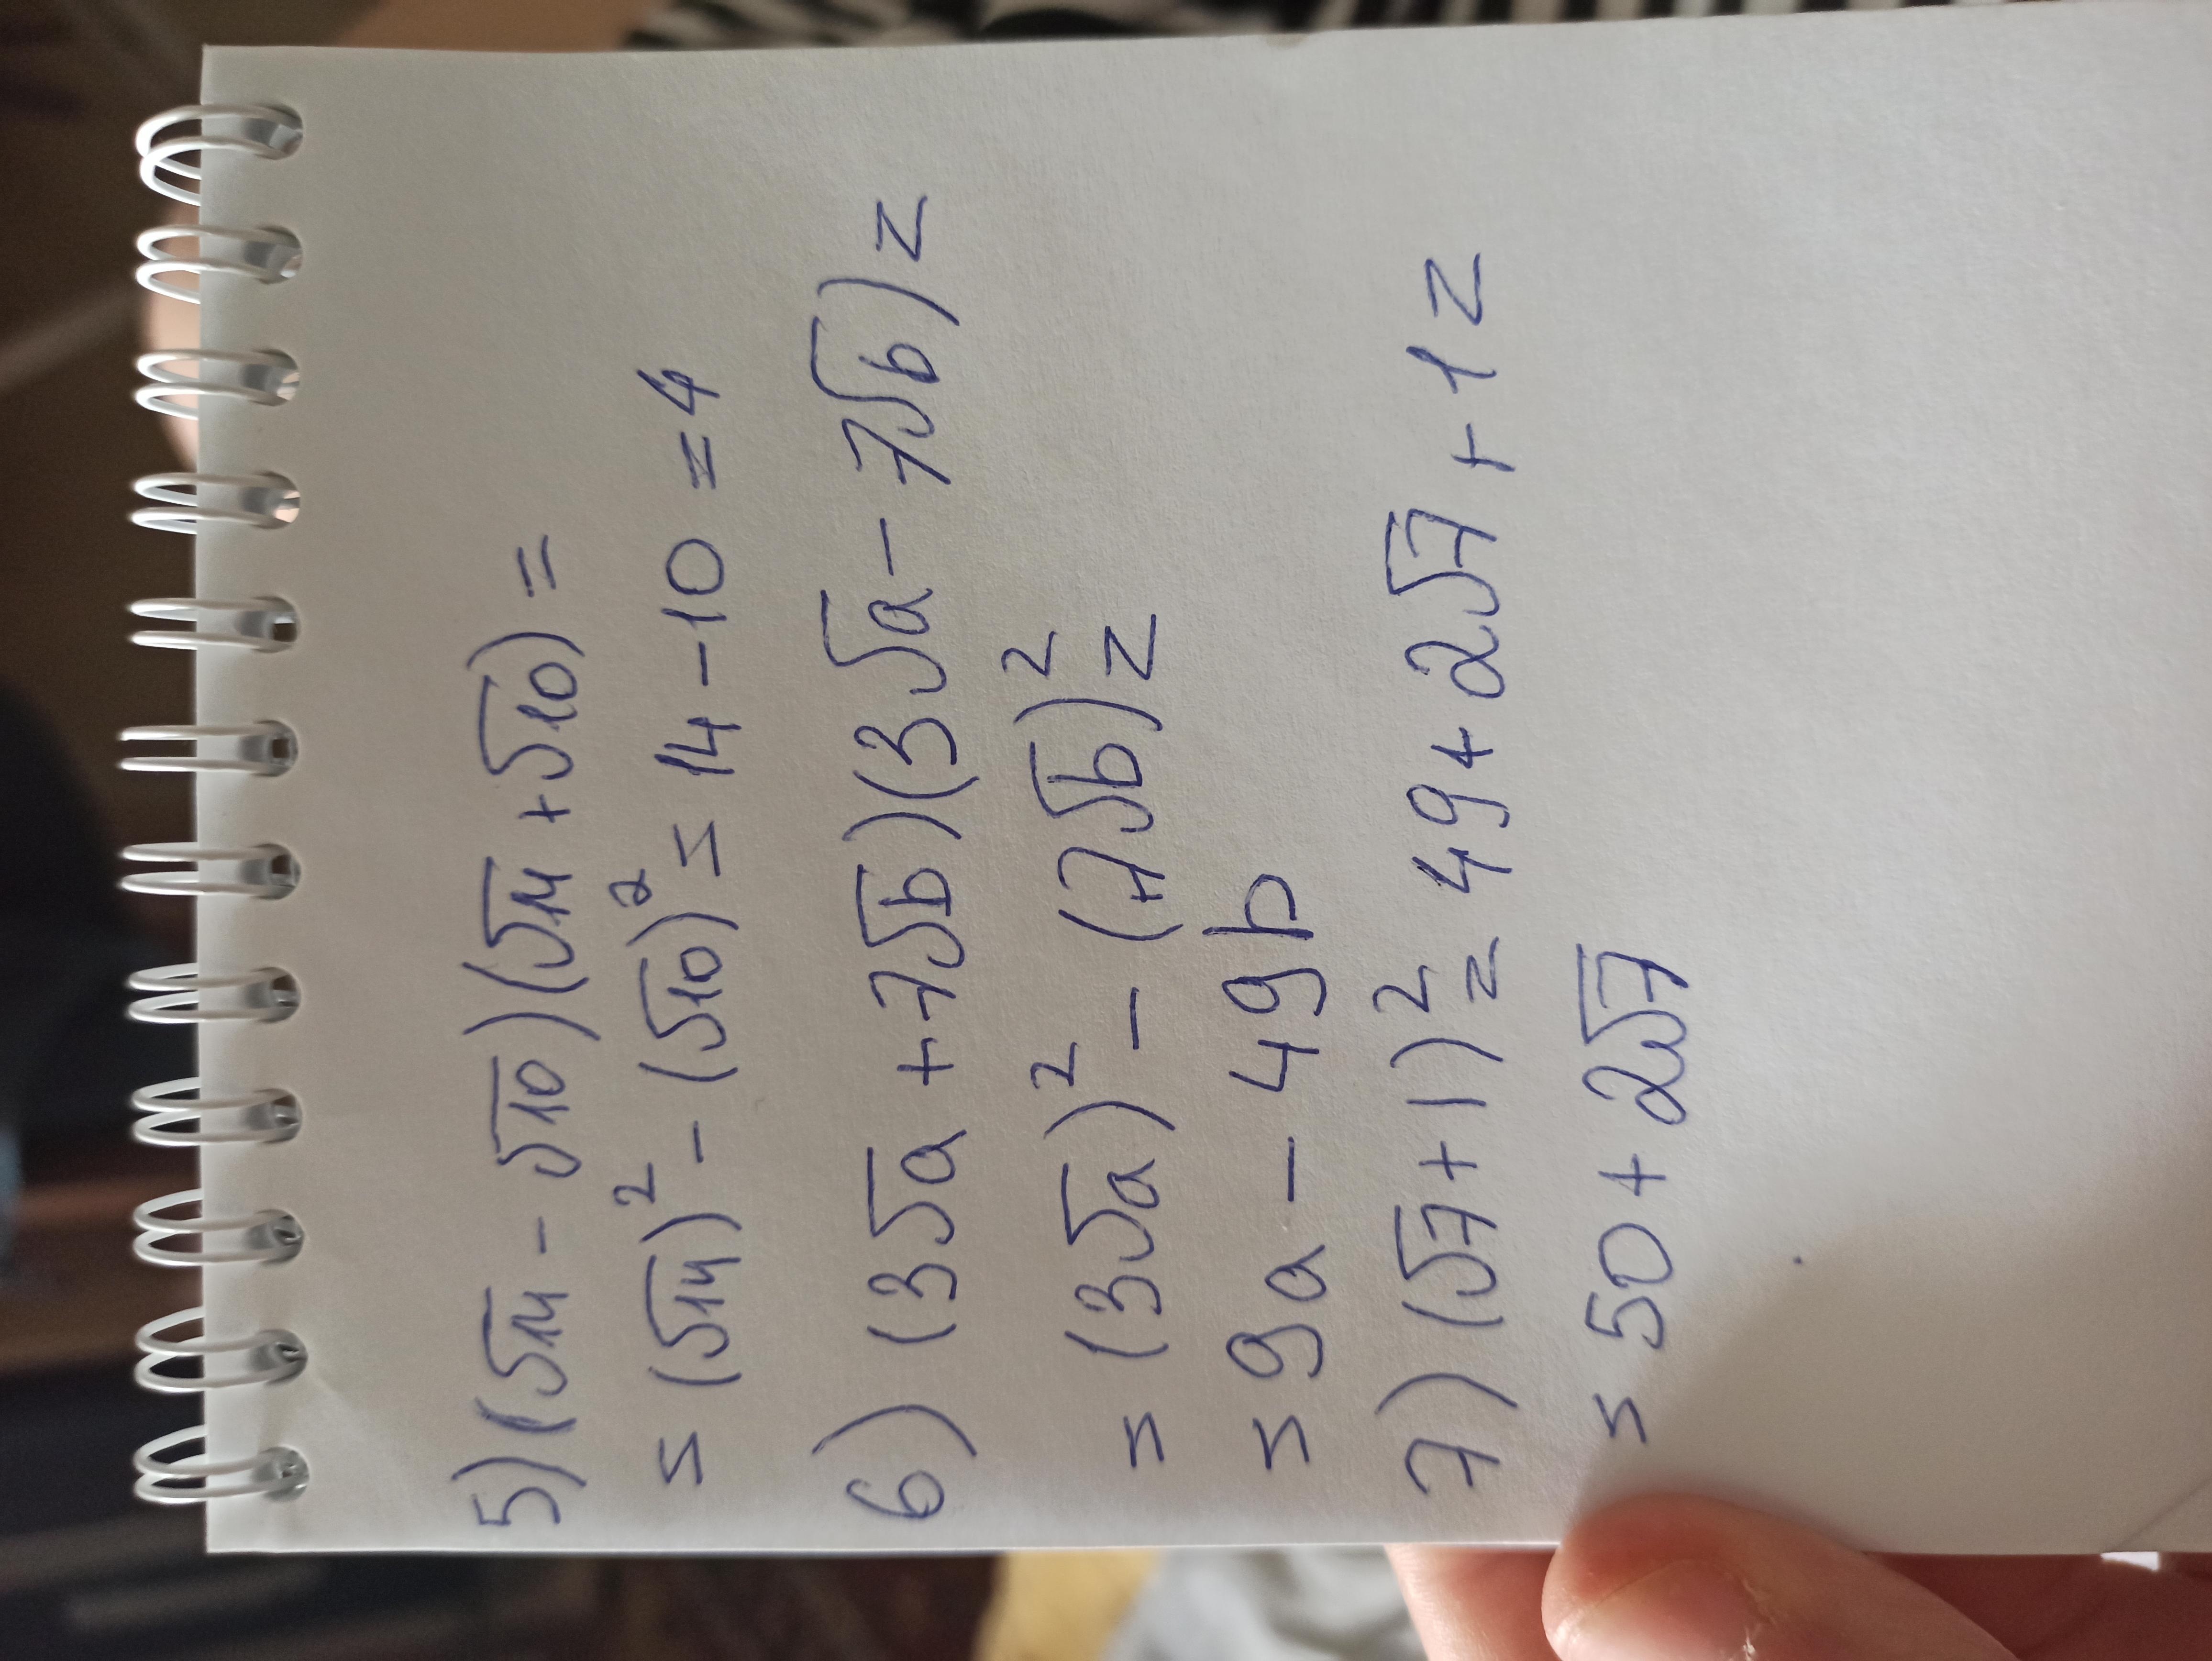 5) (√14 - √10)(√14 + √10) =
= (√14)² - (√10)² = 14 - 10 = 4
6) (3√a + 7√b)(3√a - 7√b) =
= (3√a)² - (7√b)² =
= 9a - 49b
7) (√7 + 1)² = 49 + 2√7 + 1 =
= 50 + 2√7